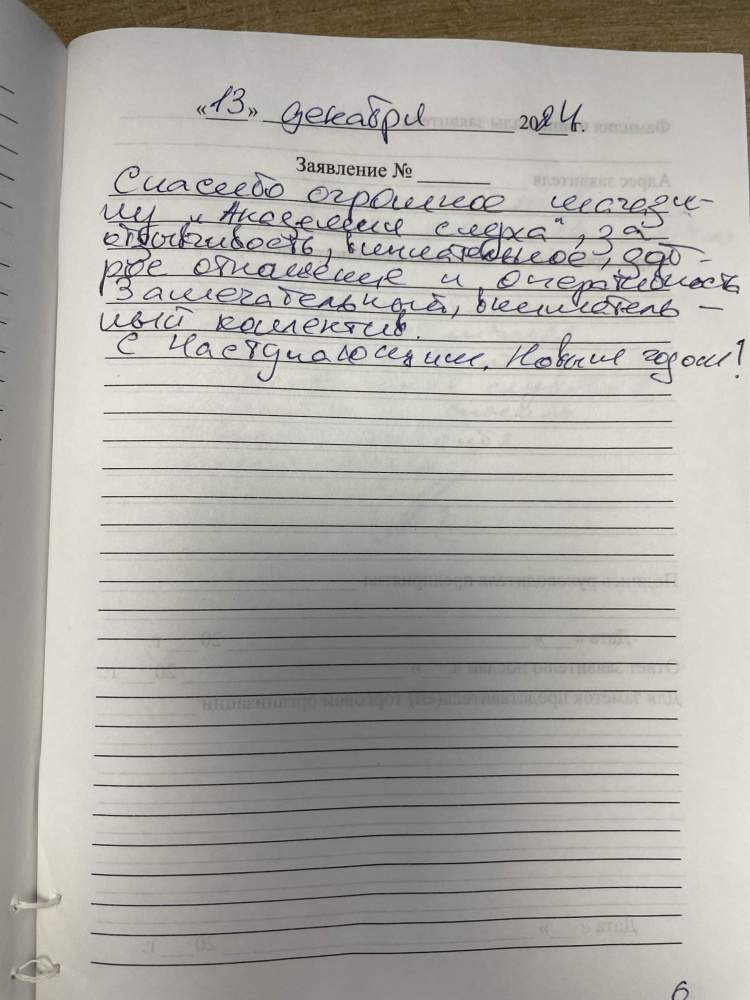 «13» декабря 2024 г.
Заявление № ______
Спасибо огромное магази-
ну „Академия слуха", за
отзывчивость, внимательное, доб-
рое отношение и оперативность
Замечательный, вниматель-
ный коллектив.
С Наступающим. Новым годом!
6